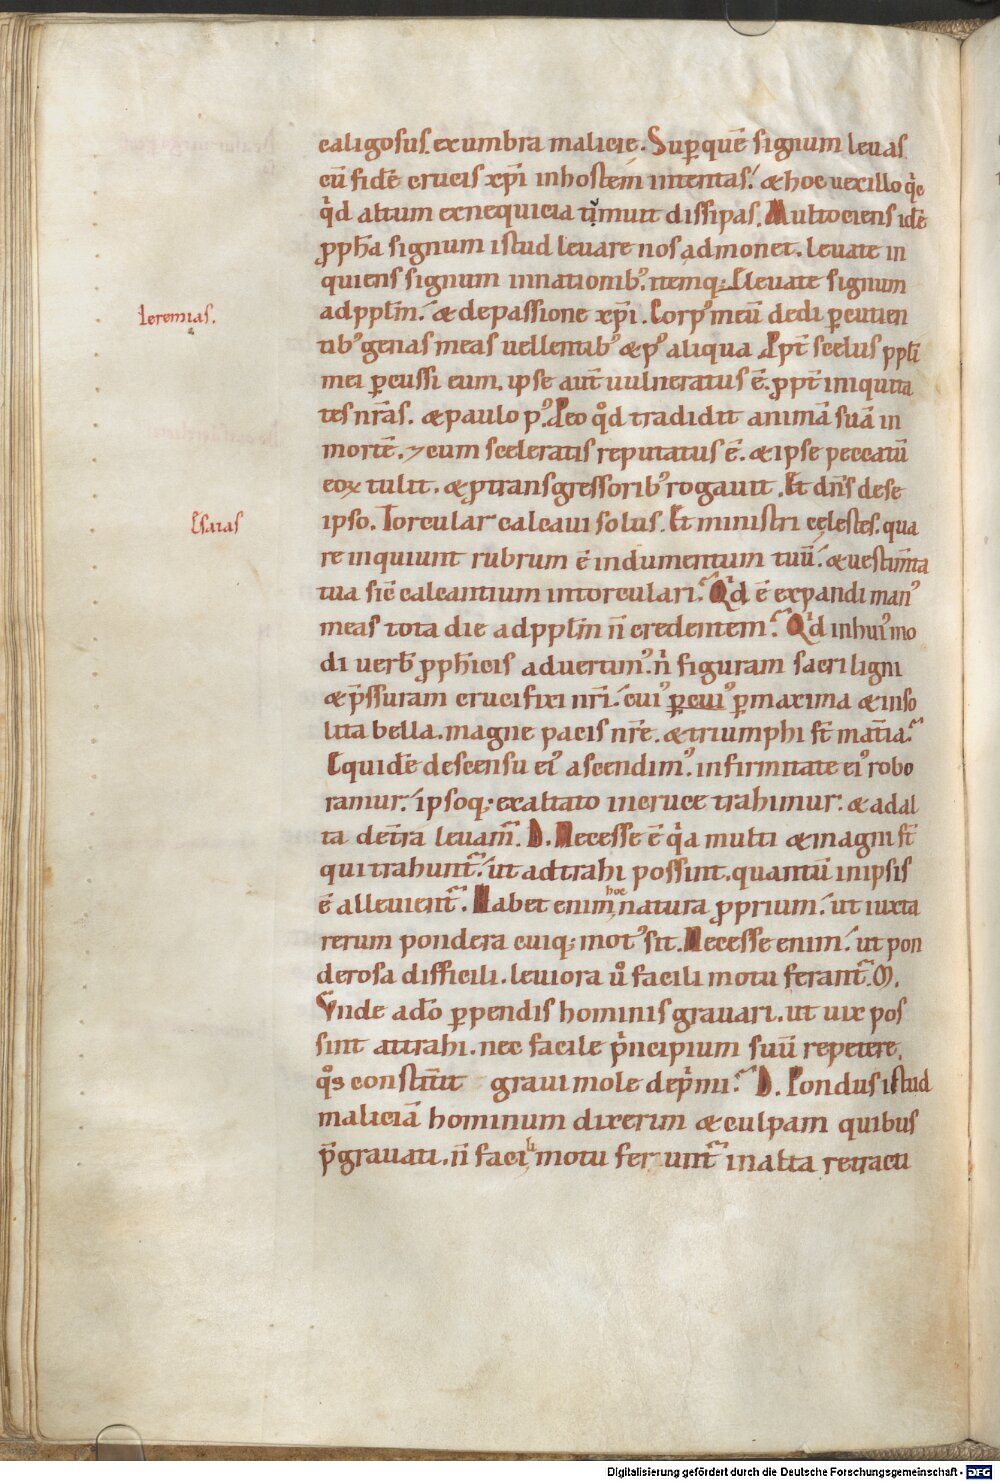 caligosus. ex umbra malicie. Sup quē signum leuas
cū fidē crucis xp̄i in hostem intentas. & hoc uexillo q̇c
q̇d altum ex nequicia timuit dissipas. Multociens idē
ꝓph̄a signum istud leuare nos admonet. leuate in
quiens signum in nationib᾽. itemq; Eleuate signum
ad ppl̄m. & de passione xp̄i. Corp᾽ meū dedi ꝑcutien
Ieremias.
tib᾽ genas meas uellentib᾽ & p᾽ aliqua. Ppt̄ scelus ppl̄i
mei ꝑcussi eum. ipse aut̄ uulneratus ē. ꝓpt̄ iniquita
tes nr̄as. & paulo p᾽. Pro qͦd tradidit animā suā in
mortē. ⁊ cum sceleratis reputatus ē. & ipse peccatū
eoꝝ tulit. & ꝓ transgressorib᾽ rogauit. Et dn̄s de se
ipso. Torcular calcaui solus. Et ministri cęlestes. qua
Esaias
re inquiunt rubrum ē indumentum tuū. & uestim̄ta
tua sic̄ calcantium in torculari. Qͥd ē expandi man᾽
meas tota die ad ppl̄m n̄ credentem. Qͥd in hui᾽mo
di uerb̄ ꝓph̄icis aduertim᾽. n̍ figuram sacri ligni
& p̄ssuram crucifixi nr̄i. cui᾽ ꝑ cui᾽ ꝑmaxima & inso
lita bella. magne pacis nr̄e. & triumphi st̄ mat̄ia.
Equidē descensu ei᾽ ascendim᾽. infirmitate ei᾽ robo
ramur. ipsoq; exaltato in cruce trahimur. & ad al
ta det̄ra leuam̄. D. Necesse ē qͥa multi & magni st̄
qui trahunt̄. ut adtrahi possint. quantū in ipsis
ē alleuient̄. Habet enim hoc natura ꝓprium. ut iuxta
rerum pondera cuiq; mot᾽ sit. Necesse enim. ut pon
derosa difficili. leuiora uͦ facili motu ferant̄. M.
Vnde adō ꝑpendis hominis grauari. ut uix pos
sint attrahi. nec facile pͥncipium suū repetere.
qͦs constit̄it graui mole depͥmi. D. Pondus istud
maliciā hominum dixerim & culpam quibus
p̄grauati. n̄ facili motu feruunt̄ in alta retracti